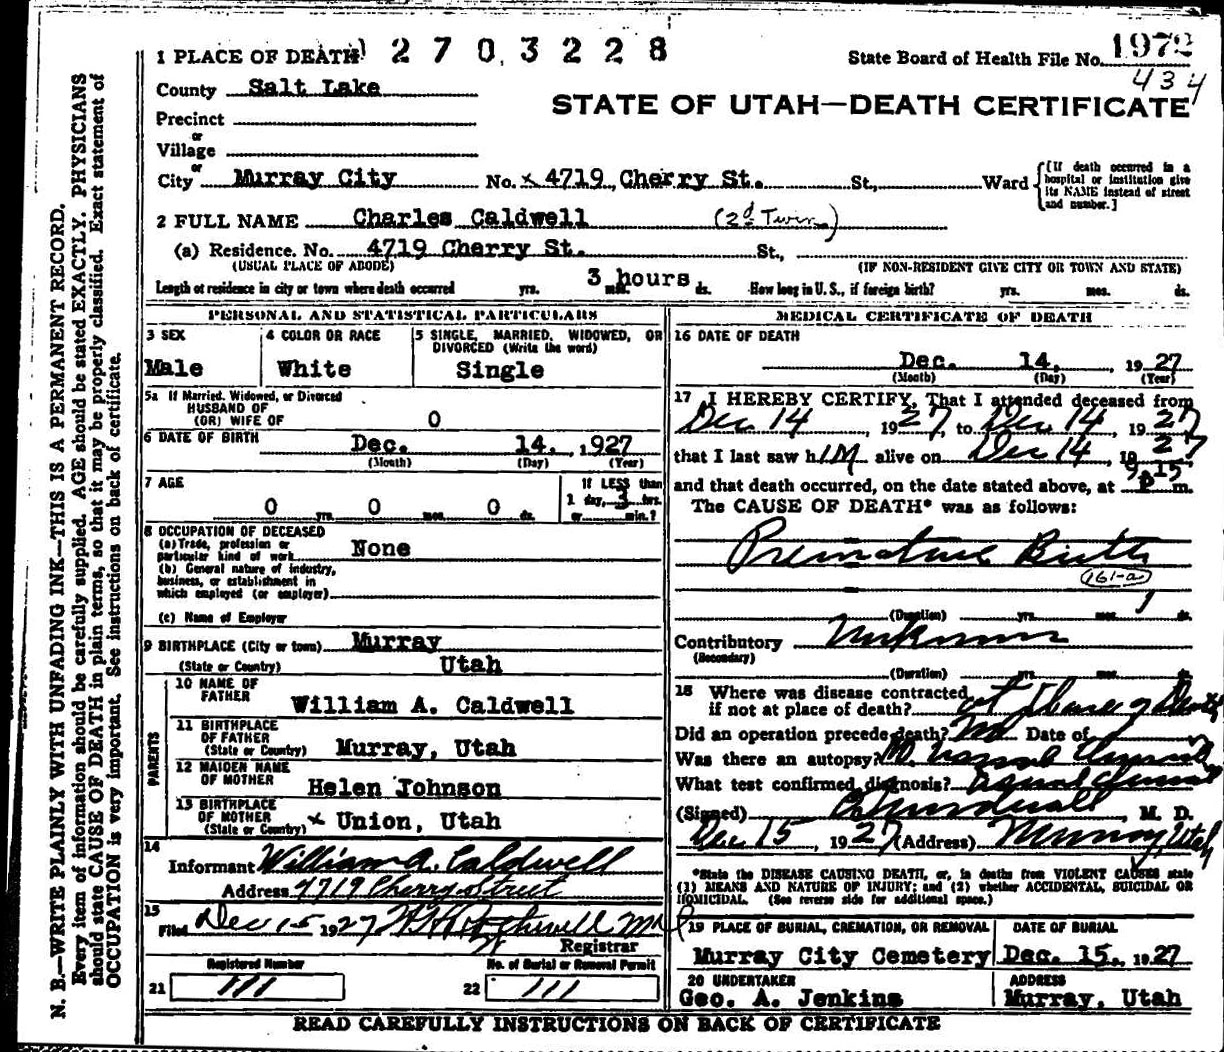 1 PLACE OF DEATH 2 7 0 3 2 2 8
State Board of Health File No. 1972
434
County Salt Lake
STATE OF UTAH—DEATH CERTIFICATE
Precinct
or
Village
or
City Murray City No. x 4719 Cherry St. St., Ward
[If death occurred in a hospital or institution give its NAME instead of street and number.]
2 FULL NAME Charles Caldwell (2d Twin)
(a) Residence. No. 4719 Cherry St. St.,
(USUAL PLACE OF ABODE) (IF NON-RESIDENT GIVE CITY OR TOWN AND STATE)
Length of residence in city or town where death occurred yrs. 3 hours mos. ds. How long in U. S., if foreign birth? yrs. mos. ds.
PERSONAL AND STATISTICAL PARTICULARS
3 SEX 4 COLOR OR RACE 5 SINGLE, MARRIED, WIDOWED, OR
DIVORCED (Write the word)
Male White Single
5a If Married, Widowed, or Divorced
HUSBAND OF
(OR) WIFE OF 0
6 DATE OF BIRTH Dec. 14, 1927
(Month) (Day) (Year)
7 AGE If LESS than
0 yrs. 0 mos. 0 ds. 1 day, 3 hrs.
or min.?
8 OCCUPATION OF DECEASED
(a) Trade, profession or
particular kind of work None
(b) General nature of industry,
business, or establishment in
which employed (or employer)
(c) Name of Employer
9 BIRTHPLACE (City or town) Murray
(State or Country) Utah
PARENTS
10 NAME OF
FATHER William A. Caldwell
11 BIRTHPLACE
OF FATHER
(State or Country) Murray, Utah
12 MAIDEN NAME
OF MOTHER Helen Johnson
13 BIRTHPLACE
OF MOTHER
(State or Country) x Union, Utah
14
Informant William A. Caldwell
Address 4719 Cherry Street
15
Filed Dec 15 1927
Registrar
Registered Number No. of Burial or Removal Permit
21 111 22 111
MEDICAL CERTIFICATE OF DEATH
16 DATE OF DEATH
Dec. 14, 1927
(Month) (Day) (Year)
17 I HEREBY CERTIFY, That I attended deceased from
Dec 14 1927, to Dec 14, 1927
that I last saw him alive on Dec 14, 1927
and that death occurred, on the date stated above, at 9:15 P m.
The CAUSE OF DEATH* was as follows:
Premature Birth
161-a
(Duration) yrs. mos. 1 ds.
Contributory Unknown
(Secondary)
(Duration) yrs. mos. ds.
18 Where was disease contracted
if not at place of death? at place of Death
Did an operation precede death? No Date of
Was there an autopsy? No
What test confirmed diagnosis? usual
(Signed) M. D.
Dec 15, 1927 (Address) Murray, Utah
*State the DISEASE CAUSING DEATH, or, in deaths from VIOLENT CAUSES state
(1) MEANS AND NATURE OF INJURY; and (2) whether ACCIDENTAL, SUICIDAL OR
HOMICIDAL. (See reverse side for additional space.)
19 PLACE OF BURIAL, CREMATION, OR REMOVAL DATE OF BURIAL
Murray City Cemetery Dec. 15, 1927
20 UNDERTAKER ADDRESS
Geo. A. Jenkins Murray, Utah
READ CAREFULLY INSTRUCTIONS ON BACK OF CERTIFICATE
N. B.—WRITE PLAINLY WITH UNFADING INK—THIS IS A PERMANENT RECORD.
Every item of information should be carefully supplied. AGE should be stated EXACTLY. PHYSICIANS
should state CAUSE OF DEATH in plain terms, so that it may be properly classified. Exact statement of
OCCUPATION is very important. See instructions on back of certificate.